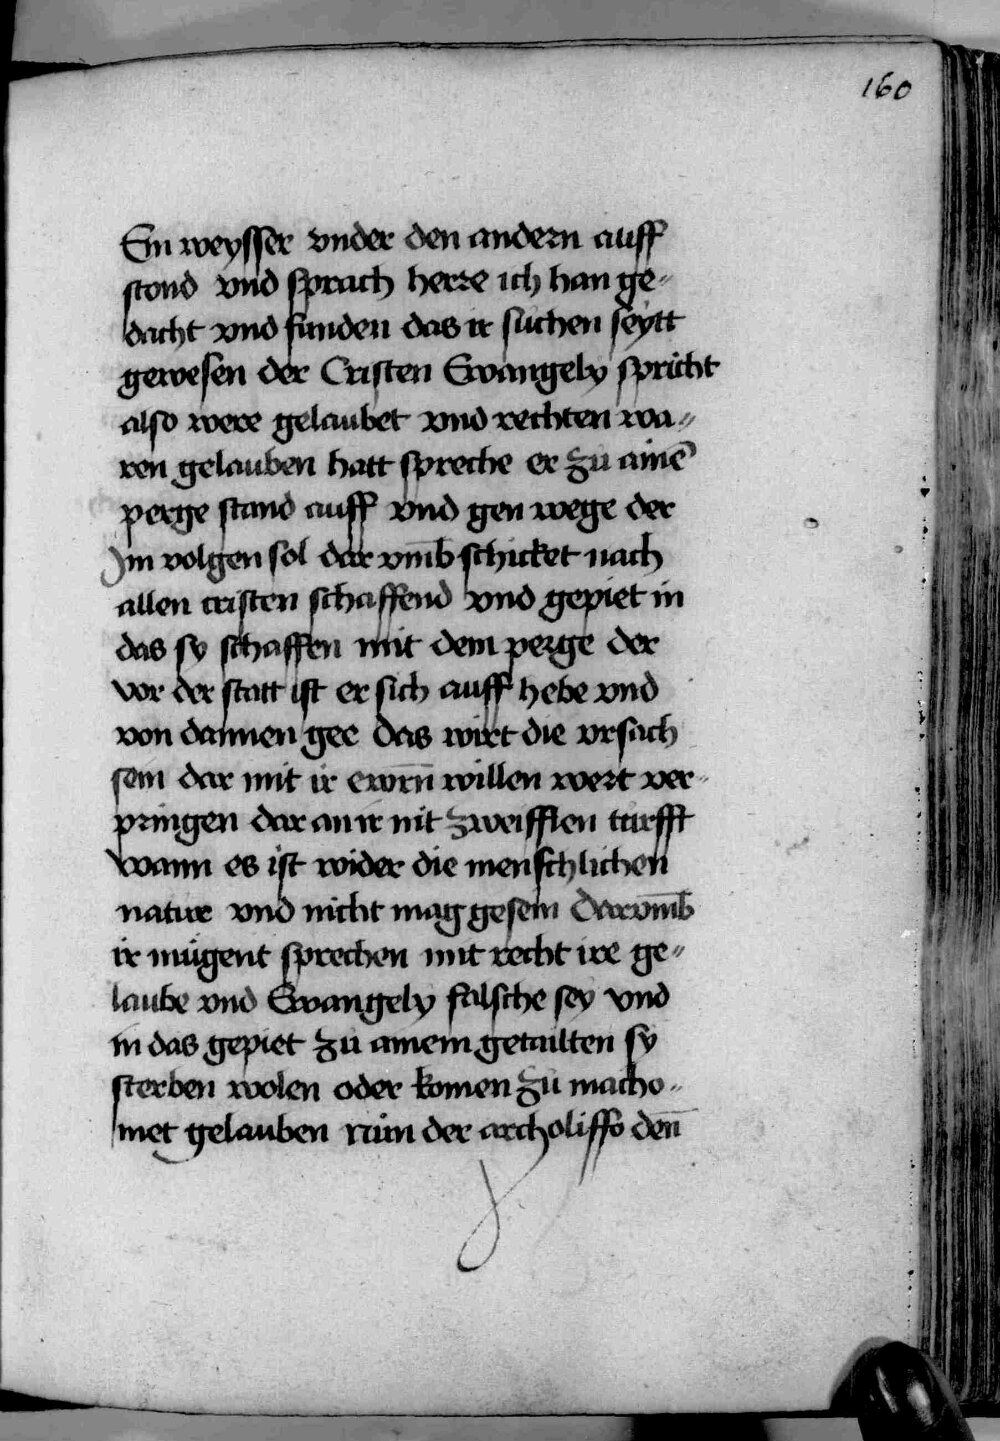 160
Ein weysser vnder den andern auff
stond vnd sprach herre ich han ge„
dacht vnd funden das ir sůchen seytt
gewesen der Cristen Ewangely spricht
also were gelaubet vnd rechten wa„
ren gelauben hatt spreche er zů aimē
perge stand auff vnd gen wege der
Jm volgen sol dar vm̄b schicket nach
allen cristen schaffend vnd gepiet in
das sy schaffen mit dem perge der
vor der statt ist er sich auff hebe vnd
von dannen gee das wirt die vrsach
sein dar mit ir ewrn̄ willen wert ver„
pringen dar an ir nit zweifflen turfft
wann es ist wider die menschlichen
natur vnd nicht mag gesein Darvm̄b
ir mügent sprechen mit recht ire ge„
laube vnd Ewangely falsche sey vnd
in das gepiet zů ainem getailten sy
sterben wolen oder komen zů macho„
met gelauben nům der archoliffo den̄